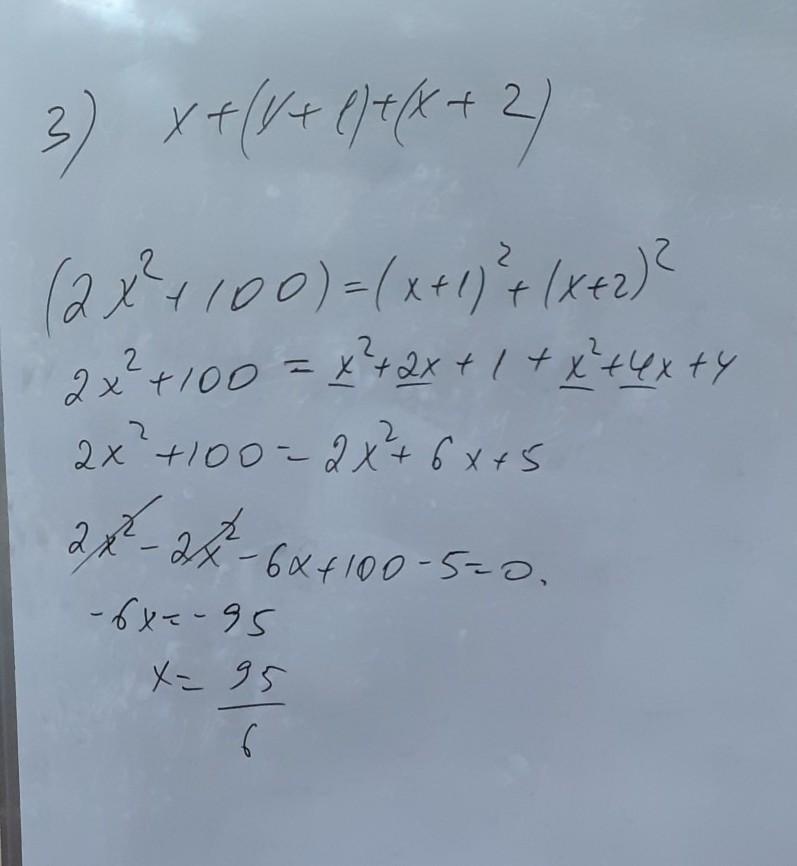 3) x+(x+1)+(x+2)
(2x²+100)=(x+1)²+(x+2)²
2x²+100 = x²+2x+1+x²+4x+4
2x²+100=2x²+6x+5
2x²-2x²-6x+100-5=0.
-6x=-95
x= 95/6